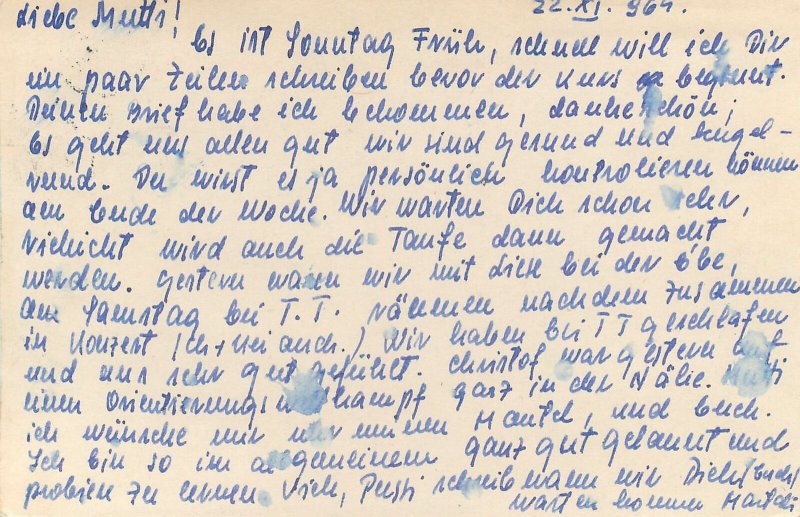 Liebe Mutti! 22.XI.964.
Es ist Sonntag Früh, schnell will ich Dir
ein paar Zeilen schreiben bevor der Kurs beginnt.
Deinen Brief habe ich bekommen, danke schön;
Es geht uns allen gut wir sind gesund und kugel-
rund. Du wirst es ja persönlich kontrolieren können
am Ende der Woche. Wir warten Dich schon sehr,
vielleicht wird auch die Taufe dann gemacht
werden. Gestern waren wir mit bei der
am Samstag bei T.T. räumen nachdem zusammen
in Konzert (Ich + auch.) Wir haben bei TT geschlafen
und uns sehr gut gefühlt. Christof war gestern auf
einen Orientierungs ganz in der Nähe. Mutti
ich wünsche mir nur einen Mantel, und
Ich bin so im algemeinem ganz gut gelaunt und
probiere zu lernen viel, schreib wann wir Dich
warten kommen